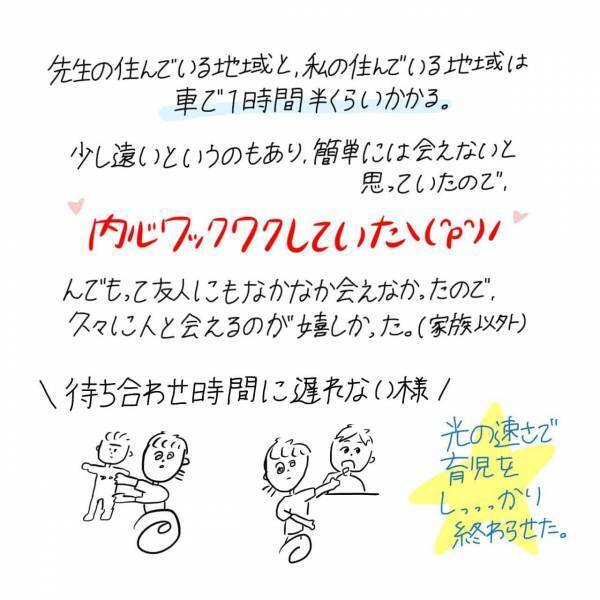 先生の住んでいる地域と、私の住んでいる地域は
車で1時間半くらいかかる。
少し遠いというのもあり、簡単には会えないと
思っていたので、
内心ワックワクしていた\(^p^)/
んでもって友人にもなかなか会えなかったので、
久々に人と会えるのが嬉しかった。(家族以外)
\待ち合わせ時間に遅れない様/
光の速さで
育児を
しっっっかり
終わらせた。